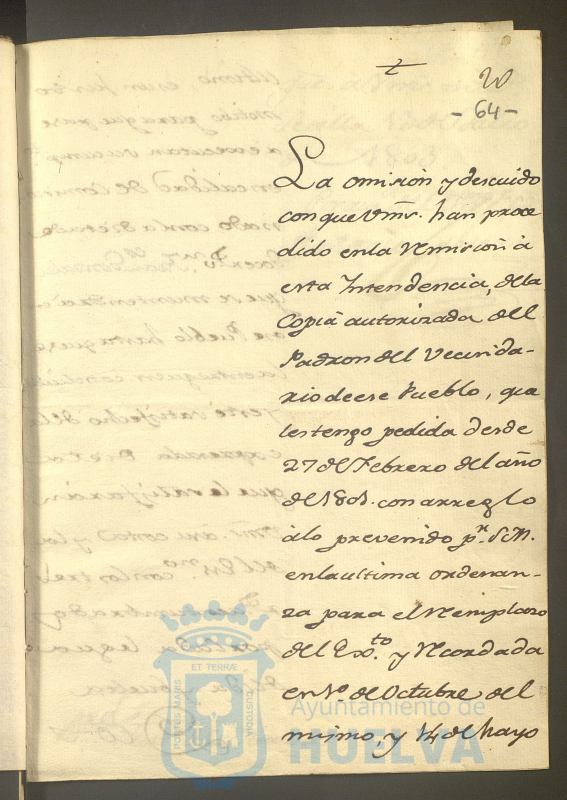 20
- 64 -
La omision y descuido
con que Vms. han proce
dido en la Remision à
esta Intendencia, de la
Copia autorizada del
Padron del Vecinda-
rio de ese Pueblo, que
les tengo pedida desde
27 de Febrero del año
de 1801. con arreglo
à lo prevenido pr. S.M.
en la ultima ordenan-
za para el Remplazo
del Exto. y Recordada
en 1o. de Octubre del
mismo, y 14 de Mayo
ET TERRÆ
PORTUS MARIS
CUSTODIA
Ayuntamiento de
HUELVA